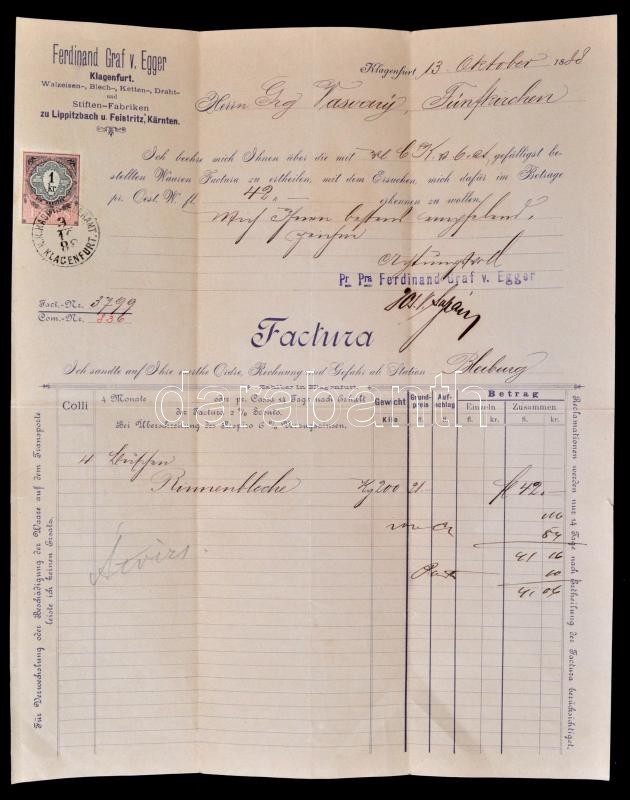 Ferdinand Graf v. Egger
Klagenfurt.
Walzeisen-, Blech-, Ketten-, Draht-
und
Stiften-Fabriken
zu Lippitzbach u. Feistritz, Kärnten.
Klagenfurt, 13. Oktober 1888
Herrn Grg Vasváry, Fünfkirchen
Ich beehre mich Ihnen über die mit gefälligst be-
stellten Waaren Factura zu ertheilen, mit dem Ersuchen, mich dafür im Betrage
pr. Oest. W. fl. 42,- erkennen zu wollen.
Mich Ihnen bestens empfehlend,
zeichne
Achtungsvoll
Pr. Pra Ferdinand Graf v. Egger
1
kr.
KLAGENFURT
Fact.-Nr. 3799
Com.-Nr. 836
Factura
Ich sandte auf Ihre werthe Ordre, Rechnung und Gefahr ab Station Bleiburg
Zahlbar in Klagenfurt.
Colli
4 Monate oder pr. Cassa 14 Tage nach Erhalt
der Factura 2% Sconto.
Bei Überschreitung des Respiro 6% Verzugszinsen.
Gewicht
Kilo
Grund-
preis
Auf-
schlag
fl.
Betrag
Einzeln
Zusammen
fl. kr. fl. kr.
4 Büschen
Rinnenbleche Kg 200 21.- fl 42.-
84
41 16
10
41 06
darabanth
Für Verwechslung oder Beschädigung der Waare auf dem Transporte
leiste ich keinen Ersatz.
Reclamationen werden nur 14 Tage nach Ertheilung der Factura berücksichtiget.